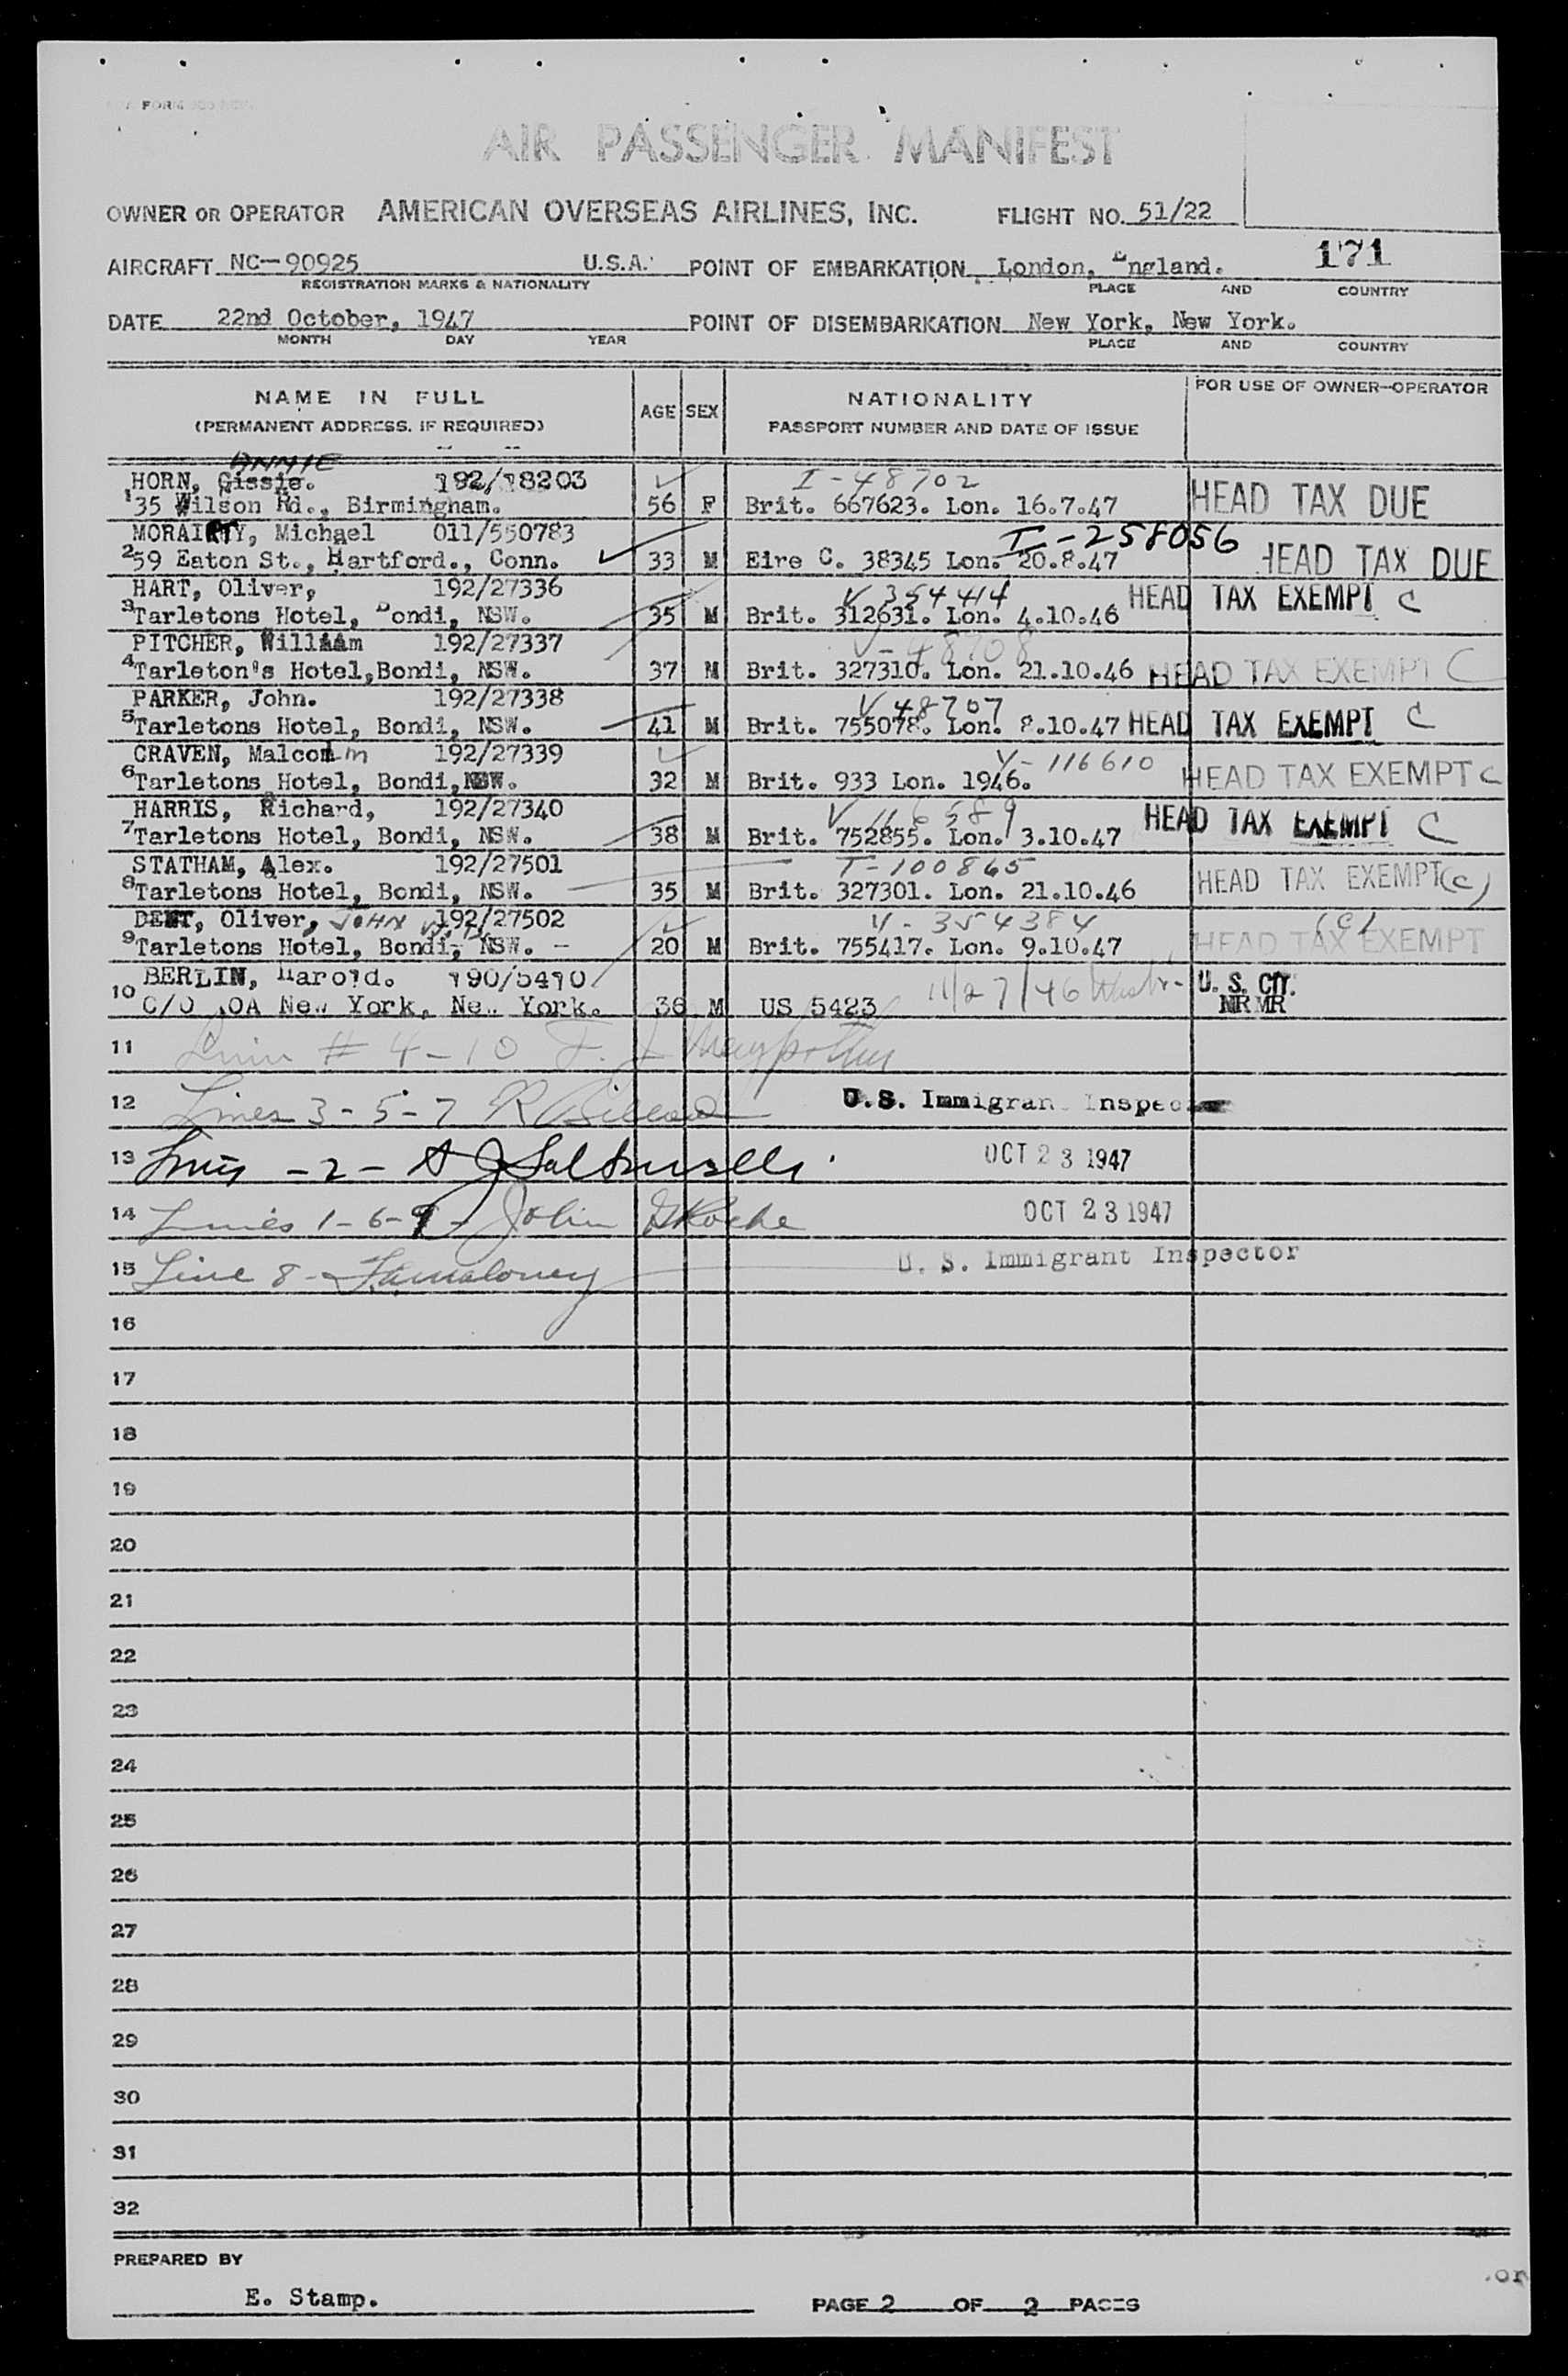 AIR PASSENGER MANIFEST
OWNER OR OPERATOR AMERICAN OVERSEAS AIRLINES, INC. FLIGHT NO. 51/22
171
AIRCRAFT NC-90925 U.S.A. POINT OF EMBARKATION London, England.
REGISTRATION MARKS & NATIONALITY PLACE AND COUNTRY
DATE 22nd October, 1947 POINT OF DISEMBARKATION New York, New York.
MONTH DAY YEAR PLACE AND COUNTRY
NAME IN FULL AGE SEX NATIONALITY FOR USE OF OWNER-OPERATOR
(PERMANENT ADDRESS. IF REQUIRED) PASSPORT NUMBER AND DATE OF ISSUE
ANNIE
HORN, Gissie. 192/18203 I-48702
1 35 Wilson Rd., Birmingham. 56 F Brit. 667623. Lon. 16.7.47 HEAD TAX DUE
MORAIRTY, Michael 011/550783 I-258056
2 59 Eaton St., Hartford., Conn. 33 M Eire C. 38345 Lon. 20.8.47 HEAD TAX DUE
HART, Oliver, 192/27336 V 354414 HEAD TAX EXEMPT C
3 Tarletons Hotel, Bondi, NSW. 35 M Brit. 312631. Lon. 4.10.46
PITCHER, William 192/27337 V-48708
4 Tarleton's Hotel, Bondi, NSW. 37 M Brit. 327310. Lon. 21.10.46 HEAD TAX EXEMPT C
PARKER, John. 192/27338 V 48707
5 Tarletons Hotel, Bondi, NSW. 41 M Brit. 755078. Lon. 8.10.47 HEAD TAX EXEMPT C
CRAVEN, Malcolm 192/27339 V-116610
6 Tarletons Hotel, Bondi, NSW. 32 M Brit. 933 Lon. 1946. HEAD TAX EXEMPT C
HARRIS, Richard, 192/27340 V 116589 HEAD TAX EXEMPT C
7 Tarletons Hotel, Bondi, NSW. 38 M Brit. 752855. Lon. 3.10.47
STATHAM, Alex. 192/27501 T-100865
8 Tarletons Hotel, Bondi, NSW. 35 M Brit. 327301. Lon. 21.10.46 HEAD TAX EXEMPT (C)
DENT, Oliver, JOHN 192/27502 V-354384 (C)
9 Tarletons Hotel, Bondi, NSW. - 20 M Brit. 755417. Lon. 9.10.47 HEAD TAX EXEMPT
BERLIN, Harold. 190/5410 11/27/46 U. S. CIT.
10 C/O AOA New York, New York. 36 M US 5423 MR MR
11 # 4-10
12 Lines 3-5-7 U.S. Immigrant Inspector
13 Lines -2- OCT 23 1947
14 Lines 1-6-9- John Roche OCT 23 1947
15 Line 8- Maloney U. S. Immigrant Inspector
16
17
18
19
20
21
22
23
24
25
26
27
28
29
30
31
32
PREPARED BY
E. Stamp.
PAGE 2 OF 2 PAGES